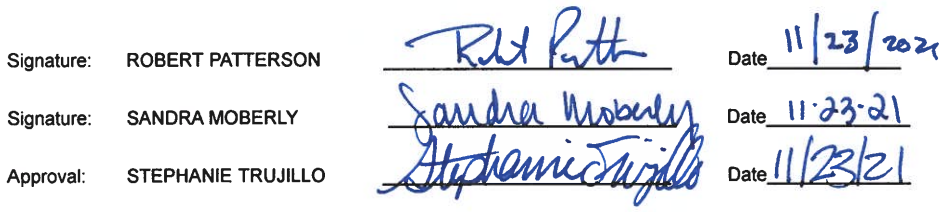 Signature: ROBERT PATTERSON Robt Patt Date 11/23/2021
Signature: SANDRA MOBERLY Sandra Moberly Date 11-23-21
Approval: STEPHANIE TRUJILLO Stephanie Trujillo Date 11/23/21